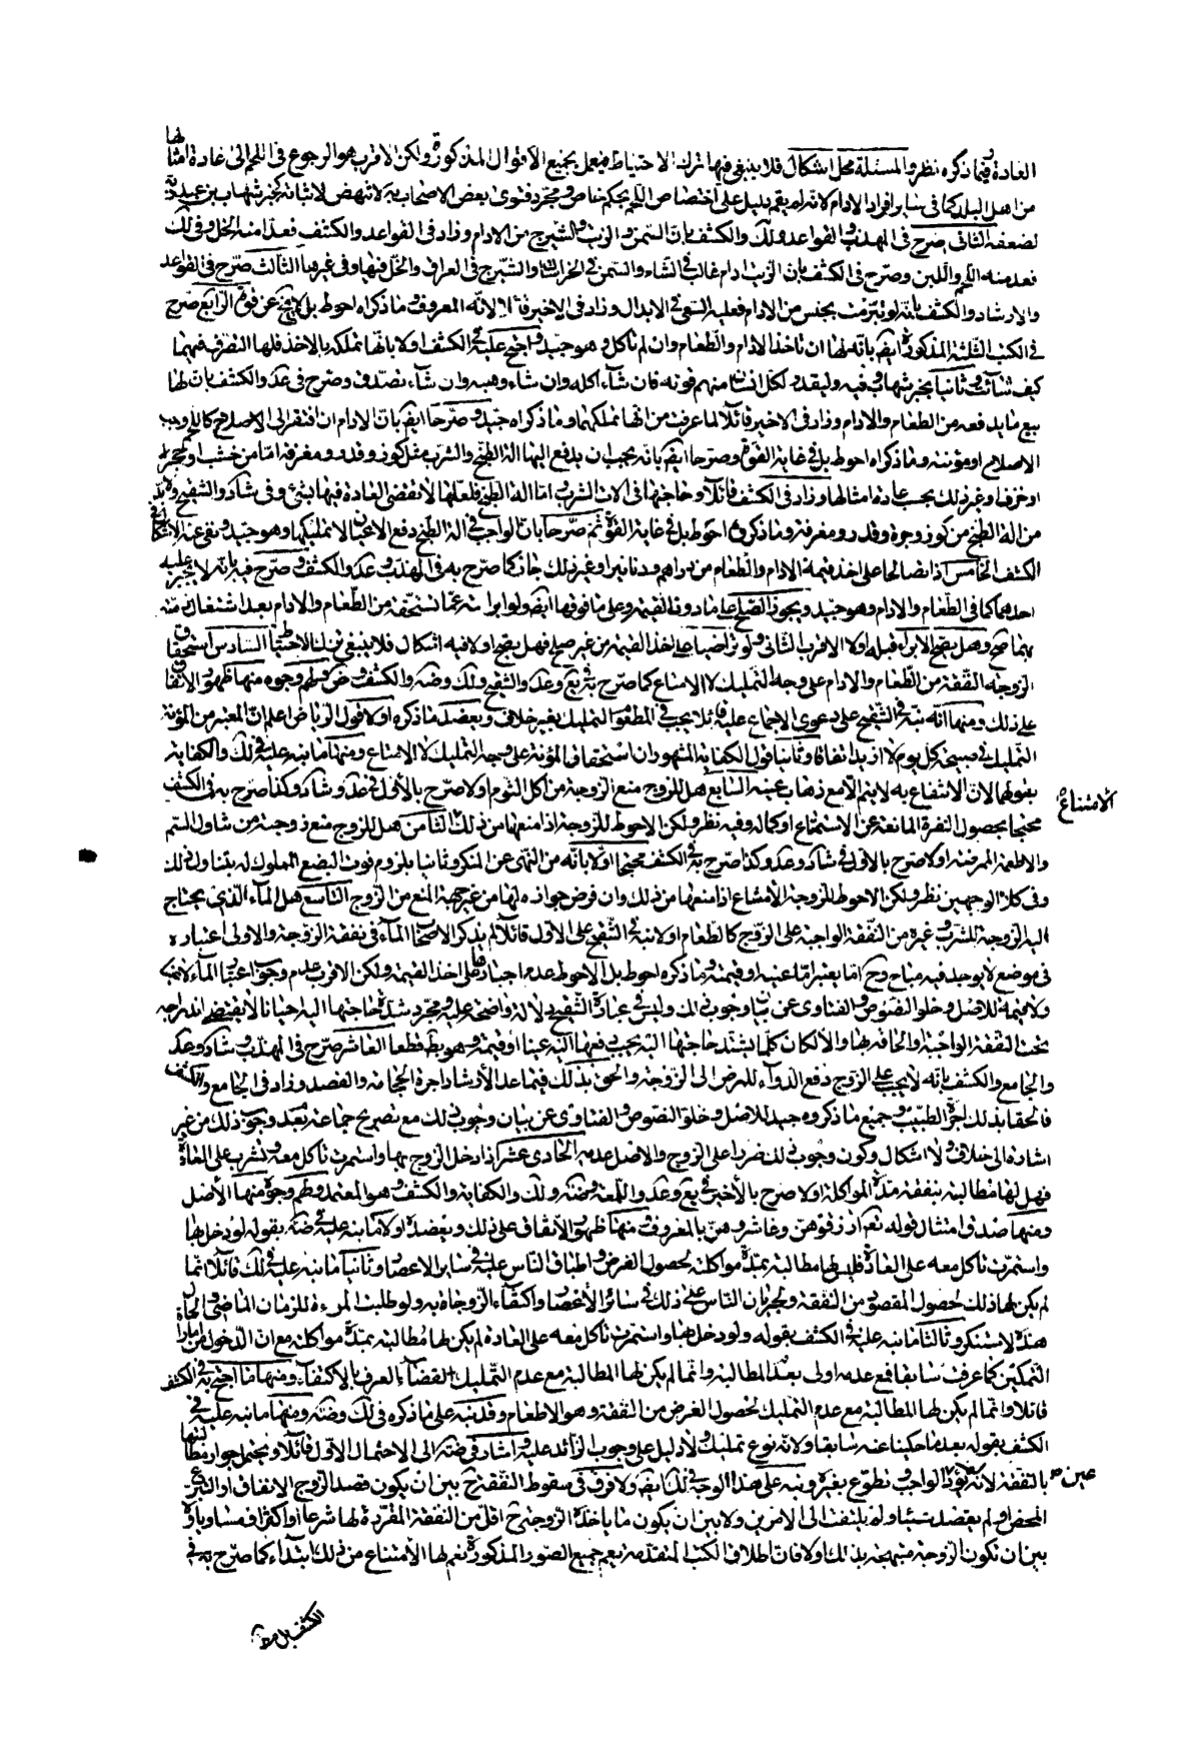 العادة فيما ذكره نظر والمسئلة محل اشكال فلا ينبغى فيها ترك الاحتياط فيعمل بجميع الاقوال المذكورة ولكن الاقرب هو الرجوع فى اللحم الى عادة امثالها
من اهل البلد كما فى ساير افراد الادام لانه لم يقم دليل على اختصاص اللحم بحكم خاص ومجرد فتوى بعض الاصحاب به لا تنهض لاثباته كخبر شهاب بن عبد ربه
لضعفه الثانى صرح فى المهذب والقواعد ولك والكشف بان السمن والزيت والشيرج من الادام وزاد فى القواعد والكشف فعدا منه الخل وفى لك
فعد منه اللحم واللبن وصرح فى الكشف بان الزيت ادام غالب فى الشاء والسمن فى الخراسان والشيرج فى العراق والخل فيها وفى غيرها الثالث صرح فى القواعد
والارشاد والكشف بانه لو تبرمت بجنس من الادام فعليه السعى فى الابدال وزاد فى الاخير قائلا لانه المعروف وما ذكراه احوط بل لا يخ عن قوة الرابع صرح
فى الكتب الثلثة المذكورة ايض بانه لها ان تاخذ الادام والطعام وان لم تاكل وهو جيد واحتج عليه فى الكشف اولا بانها تملكه بالاخذ فلها التصرف فيهما
كيف شائت وثانيا بخبر شهاب وفيه وليقدر لكل انسان منهم قوته فان شآء اكله وان شاء وهبه وان شآء تصدق وصرح فى عد والكشف بان لها
بيع ما يدفعه من الطعام والادام وزاد فى الاخير قائلا لما عرفت من انها تملكهما وما ذكراه جيد وصرحا ايض بان الادام ان افتقر الى الاصلاح كاللحم وجب
الاصلاح او مؤنته وما ذكراه احوط بل فى غاية القوة وصرحا ايض بانه يجب ان يدفع اليها الة الطبخ والشرب مثل كوز وقدر ومغرفة اما من خشب او حجر
او خزف وغير ذلك بحسب عادة امثالها وزاد فى الكشف قائلا وحاجتها فى الات الشرب اما الة الطبخ فلعلها لا تقضى العادة فيها بشئ وفى شاد والتنقيح ولا بد
من الة الطبخ من كوز وجرة وقدر ومغرفة وما ذكروه احوط بل فى غاية القوة ثم صرحا بان الواجب فى الة الطبخ دفع الاعيان لا تمليكها وهو جيد ونفى عنه الاشكال فى
الكشف الخامس اذا تصالحا على اخذ قيمة الادام والطعام من دراهم ودنانير او غير ذلك جاز كما صرح به فى المهذب وعد والكشف وصرح فيه بانه لا يجبر عليه
احدهما كما فى الطعام والادام وهو جيد ويجوز الصلح على ما دون القيمة وعلى ما فوقها ايض ولو ابراته عما تستحقه من الطعام والادام بعد اشتغال ذمته
بهما صح وهل يصح الابراء قبله او لا الاقرب الثانى ولو تراضيا على اخذ القيمة من غير صلح فهل يصح او لا فيه اشكال فلا ينبغى ترك الاحتياط السادس استحقاق
الزوجة النفقة من الطعام والادام على وجه التمليك لا الامتاع كما صرح به فى يع وعد والتنقيح ولك وضه والكشف وض ولهم وجوه منها ظهور الاتفاق
على ذلك ومنها انه نبه فى التنقيح على دعوى الاجماع عليه قائلا يجب فى المطعوم التمليك بغير خلاف ويعضد ما ذكره اولا قول الرياض اعلم ان المعتبر من المؤنة
التمليك فى صبيحة كل يوم لا ازيد اتفاقا وثانيا قول الكفاية المشهور ان استحقاق المؤنة على وجه التمليك لا الامتاع ومنها ما نبه عليه فى لك والكفاية
بقولهما لان الانتفاع به لا يتم الا مع ذهاب عينه السابع هل للزوج منع الزوجة من اكل الثوم او لا صرح بالاول فى عد وشاد وكذا صرح به فى الكشف
محتجا بحصول النفرة المانعة عن الاستمتاع او كماله وفيه نظر ولكن الاحوط للزوجة اذا منعها من ذلك الامتناع الثامن هل للزوج منع زوجته من تناول السم
والاطعمة الممرضة او لا صرح بالاول فى شاد وعد وكذا صرح به فى الكشف محتجا اولا بانه من النهى عن المنكر وثانيا بلزوم فوت البضع المملوك له بتناول ذلك
وفى كلا الوجهين نظر ولكن الاحوط للزوجة الامتناع اذا منعها من ذلك وان فرض جوازه لها من غير جهة المنع من الزوج التاسع هل المآء الذى يحتاج
اليه الزوجة للشرب وغيره من النفقة الواجبة على الزوج كالطعام او لا نبه فى التنقيح على الاول قائلا لم يذكر الاصحاب المآء فى نفقة الزوجة والاولى اعتباره
فى موضع لا يوجد فيه مباح وح اما يعتبر اما عينه او قيمته وما ذكره احوط بل الاحوط عدم اجبارها على اخذ القيمة ولكن الاقرب عدم وجوب اعتبار المآء لا عينه
ولا قيمة للاصل وخلو النصوص والفتاوى عن بيان وجوب ذلك وليس فى عبارة التنقيح دلالة واضحة عليه ومجرد شدة حاجتها اليه احيانا لا يقتضى اندراجه
تحت النفقة الواجبة والحاقه بها والا لكان كلما يشتد حاجتها اليه يجب دفعها اليه عينا او قيمة وهو بط قطعا العاشر صرح فى المهذب وشاد وعد
والجامع والكشف بانه لا يجب على الزوج دفع الدوآء للمرض الى الزوجة والحق بذلك فيما عدا الارشاد اجرة الحجامة والفصد وزاد فى الجامع والكشف
فالحقا بذلك اجرة الطبيب وجميع ما ذكروه جيد للاصل وخلو النصوص والفتاوى عن بيان وجوب ذلك مع تصريح جماعة بعدم وجوب ذلك من غير
اشارة الى خلاف ولا اشكال وكون وجوب ذلك ضررا على الزوج والاصل عدمه الحادى عشر اذا دخل الزوج بها واستمرت تاكل معه وتشرب على العادة
فهل لها مطالبته بنفقة مدة المواكلة او لا صرح بالاخير فى يع وعد واللمعة وضه ولك والكفاية والكشف وهو المعتمد ولهم وجوه منها الأصل
ومنها صدق امتثال قوله تعم ارزقوهن وعاشروهن بالمعروف منها ظهور الاتفاق على ذلك ويعضده اولا ما نبه عليه فى ضه بقوله لو دخل بها
واستمرت تاكل معه على العادة فليس لها مطالبته بمدة مواكلته لحصول الغرض واطباق الناس عليه فى ساير الاعصار وثانيا ما نبه عليه فى لك قائلا انما
لم يكن لها ذلك لحصول المقصود من النفقة ولجريان الناس على ذلك فى سائر الأعصار واكتفآء الزوجات به ولو طلبت المرءة للزمان الماضى والحال
هذه لاستنكر وثالثا ما نبه عليه فى الكشف بقوله ولو دخل بها واستمرت تاكل معه على العادة لم يكن لها مطالبته بمدة مواكلته مع ان الدخول من امارة
التمكين كما عرفت سابقا فمع عدمه اولى بعدم المطالبة وانما لم يكن لها المطالبة مع عدم التمليك لقضآء العرف بالاكتفآء ومنها ما احتج به فى الكشف
قائلا وانما لم يكن لها المطالبة مع عدم التمليك لحصول الغرض من النفقة وهو الاطعام وقد نبه على ما ذكره فى لك وضه ومنها ما نبه عليه فى
الكشف بقوله بعد ما حكينا عنه سابقا ولانه نوع تمليك ولا دليل على وجوب الزائد عليه واشار فى ضه الى الاحتمال الاول قائلا ويحتمل جواز مطالبتها
بالنفقة لانه لم يؤد عين الواجب وتطوع بغيره ونبه على هذا الوجه فى لك ايض ولا فرق فى سقوط النفقة ح بين ان يكون قصد الزوج الانفاق او التبرع
المحض او لم يقصد شيئا ولم يلتفت الى الامرين ولا بين ان يكون ما ياخذه الزوجة ح اقل من النفقة المقررة لها شرعا او اكثر او مساويا ولا
بين ان تكون الزوجة مبتهجة بذلك او لا فان اطلاق الكتب المتقدمة يعم جميع الصور المذكورة نعم لها الأمتناع من ذلك ابتدآء كما صرح به فى
الكشف بل